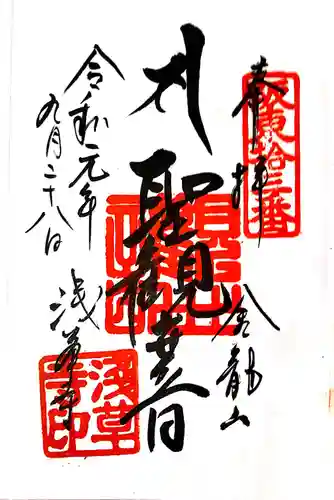 奉拝
坂東拾三番
金龍山
聖観世音
令和元年
九月二十八日
浅草寺
浅草寺印